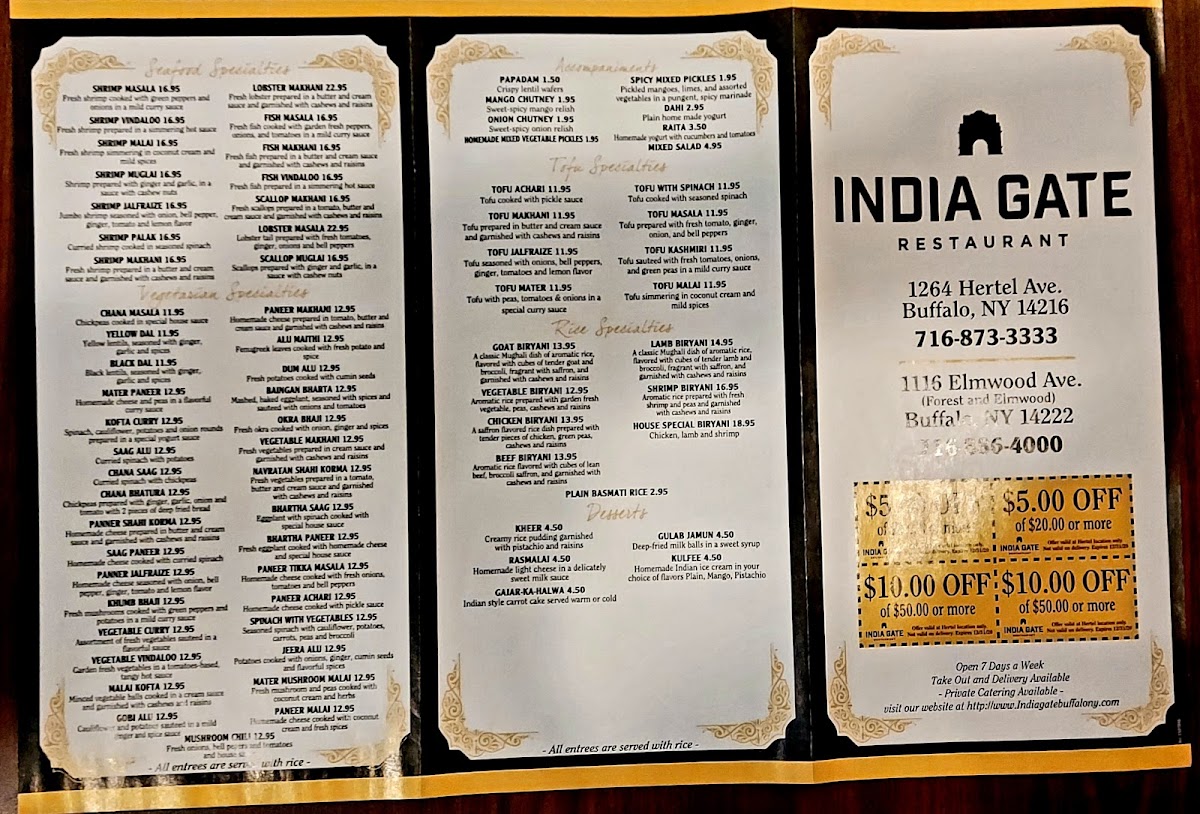 Seafood Specialties
SHRIMP MASALA 16.95
Fresh shrimp cooked with green peppers and
onions in a mild curry sauce
SHRIMP VINDALOO 16.95
Fresh shrimp prepared in a simmering hot sauce
SHRIMP MALAI 16.95
Fresh shrimp simmering in coconut cream and
mild spices
SHRIMP MUGLAI 16.95
Shrimp prepared with ginger and garlic, in a
sauce with cashew nuts
SHRIMP JALFRAIZE 16.95
Jumbo shrimp seasoned with onion, bell pepper,
ginger, tomato and lemon flavor
SHRIMP PALAK 16.95
Curried shrimp cooked in seasoned spinach
SHRIMP MAKHANI 16.95
Fresh shrimp prepared in a butter and cream
sauce and garnished with cashews and raisins
LOBSTER MAKHANI 22.95
Fresh lobster prepared in a butter and cream
sauce and garnished with cashews and raisins
FISH MASALA 16.95
Fresh fish cooked with garden fresh peppers,
onions, and tomatoes in a mild curry sauce
FISH MAKHANI 16.95
Fresh fish prepared in a butter and cream sauce
and garnished with cashews and raisins
FISH VINDALOO 16.95
Fresh fish prepared in a simmering hot sauce
SCALLOP MAKHANI 16.95
Fresh scallops prepared in a tomato, butter and
cream sauce and garnished with cashews and raisins
LOBSTER MASALA 22.95
Lobster tail prepared with fresh tomatoes,
ginger, onions and bell peppers
SCALLOP MUGLAI 16.95
Scallops prepared with ginger and garlic, in a
sauce with cashew nuts
Vegetarian Specialties
CHANA MASALA 11.95
Chickpeas cooked in special house sauce
YELLOW DAL 11.95
Yellow lentils, seasoned with ginger,
garlic and spices
BLACK DAL 11.95
Black lentils, seasoned with ginger,
garlic and spices
MATER PANEER 12.95
Homemade cheese and peas in a flavorful
curry sauce
KOFTA CURRY 12.95
Spinach, cauliflower, potatoes and onion rounds
prepared in a special yogurt sauce
SAAG ALU 12.95
Curried spinach with potatoes
CHANA SAAG 12.95
Curried spinach with chickpeas
CHANA BHATURA 12.95
Chickpeas prepared with ginger, garlic, onion and
tomato with 2 pieces of deep fried bread
PANNER SHAHI KORMA 12.95
Homemade cheese prepared in butter and cream
sauce and garnished with cashews and raisins
SAAG PANEER 12.95
Homemade cheese cooked with curried spinach
PANNER JALFRAIZE 12.95
Homemade cheese seasoned with onion, bell
pepper, ginger, tomato and lemon flavor
KHUMB BHAJI 12.95
Fresh mushrooms cooked with green peppers and
potatoes in a mild curry sauce
VEGETABLE CURRY 12.95
Assortment of fresh vegetables sauteed in a
flavorful sauce
VEGETABLE VINDALOO 12.95
Garden fresh vegetables in a tomatoes-based,
tangy hot sauce
MALAI KOFTA 12.95
Minced vegetable balls cooked in a cream sauce
and garnished with cashews and raisins
GOBI ALU 12.95
Cauliflower and potatoes sauteed in a mild
ginger and spice sauce
PANEER MAKHANI 12.95
Homemade cheese prepared in tomato, butter and
cream sauce and garnished with cashews and raisins
ALU MAITHI 12.95
Fenugreek leaves cooked with fresh potato and
spice
DUM ALU 12.95
Fresh potatoes cooked with cumin seeds
BAINGAN BHARTA 12.95
Mashed, baked eggplant, seasoned with spices and
sauteed with onions and tomatoes
OKRA BHAJI 12.95
Fresh okra cooked with onion, ginger and spices
VEGETABLE MAKHANI 12.95
Fresh vegetables prepared in cream sauce and
garnished with cashews and raisins
NAVRATAN SHAHI KORMA 12.95
Fresh vegetables prepared in a tomato,
butter and cream sauce and garnished
with cashews and raisins
BHARTHA SAAG 12.95
Eggplant with spinach cooked with
special house sauce
BHARTHA PANEER 12.95
Fresh eggplant cooked with homemade cheese
and special house sauce
PANEER TIKKA MASALA 12.95
Homemade cheese cooked with fresh onions,
tomatoes and bell peppers
PANEER ACHARI 12.95
Homemade cheese cooked with pickle sauce
SPINACH WITH VEGETABLES 12.95
Seasoned spinach with cauliflower, potatoes,
carrots, peas and broccoli
JEERA ALU 12.95
Potatoes cooked with onions, ginger, cumin seeds
and flavorful spices
MATER MUSHROOM MALAI 12.95
Fresh mushroom and peas cooked with
coconut cream and herbs
PANEER MALAI 12.95
Homemade cheese cooked with coconut
cream and fresh spices
MUSHROOM CHILI 12.95
Fresh onions, bell peppers and tomatoes
and house
- All entrees are served with rice -
Accompaniments
PAPADAM 1.50
Crispy lentil wafers
MANGO CHUTNEY 1.95
Sweet-spicy mango relish
ONION CHUTNEY 1.95
Sweet-spicy onion relish
HOMEMADE MIXED VEGETABLE PICKLES 1.95
SPICY MIXED PICKLES 1.95
Pickled mangoes, limes, and assorted
vegetables in a pungent, spicy marinade
DAHI 2.95
Plain home made yogurt
RAITA 3.50
Homemade yogurt with cucumbers and tomatoes
MIXED SALAD 4.95
Tofu Specialties
TOFU ACHARI 11.95
Tofu cooked with pickle sauce
TOFU MAKHANI 11.95
Tofu prepared in butter and cream sauce
and garnished with cashews and raisins
TOFU JALFRAIZE 11.95
Tofu seasoned with onions, bell peppers,
ginger, tomatoes and lemon flavor
TOFU MATER 11.95
Tofu with peas, tomatoes & onions in a
special curry sauce
TOFU WITH SPINACH 11.95
Tofu cooked with seasoned spinach
TOFU MASALA 11.95
Tofu prepared with fresh tomato, ginger,
onion, and bell peppers
TOFU KASHMIRI 11.95
Tofu sauteed with fresh tomatoes, onions,
and green peas in a mild curry sauce
TOFU MALAI 11.95
Tofu simmering in coconut cream and
mild spices
Rice Specialties
GOAT BIRYANI 13.95
A classic Mughali dish of aromatic rice,
flavored with cubes of tender goat and
broccoli, fragrant with saffron, and
garnished with cashews and raisins
VEGETABLE BIRYANI 12.95
Aromatic rice prepared with garden fresh
vegetable, peas, cashews and raisins
CHICKEN BIRYANI 13.95
A saffron flavored rice dish prepared with
tender pieces of chicken, green peas,
cashews and raisins
BEEF BIRYANI 13.95
Aromatic rice flavored with cubes of lean
beef, broccoli saffron, and garnished with
cashews and raisins
LAMB BIRYANI 14.95
A classic Mughali dish of aromatic rice,
flavored with cubes of tender lamb and
broccoli, fragrant with saffron, and
garnished with cashews and raisins
SHRIMP BIRYANI 16.95
Aromatic rice prepared with fresh
shrimp and peas and garnished
with cashews and raisins
HOUSE SPECIAL BIRYANI 18.95
Chicken, lamb and shrimp
PLAIN BASMATI RICE 2.95
Desserts
KHEER 4.50
Creamy rice pudding garnished
with pistachio and raisins
RASMALAI 4.50
Homemade light cheese in a delicately
sweet milk sauce
GAJAR-KA-HALWA 4.50
Indian style carrot cake served warm or cold
GULAB JAMUN 4.50
Deep-fried milk balls in a sweet syrup
KULFEE 4.50
Homemade Indian ice cream in your
choice of flavors Plain, Mango, Pistachio
- All entrees are served with rice -
INDIA GATE
RESTAURANT
1264 Hertel Ave.
Buffalo, NY 14216
716-873-3333
1116 Elmwood Ave.
(Forest and Elmwood)
Buffalo, NY 14222
716-886-4000
$5.00 OFF
of $20.00 or more
INDIA GATE
Offer valid at Hertel location only
Not valid on delivery. Expires 12/31/20
$10.00 OFF
of $50.00 or more
INDIA GATE
Offer valid at Hertel location only
Not valid on delivery. Expires 12/31/20
$10.00 OFF
of $50.00 or more
INDIA GATE
Offer valid at Hertel location only
Not valid on delivery. Expires 12/31/20
Open 7 Days a Week
Take Out and Delivery Available
- Private Catering Available -
visit our website at http://www.Indiagatebuffalony.com